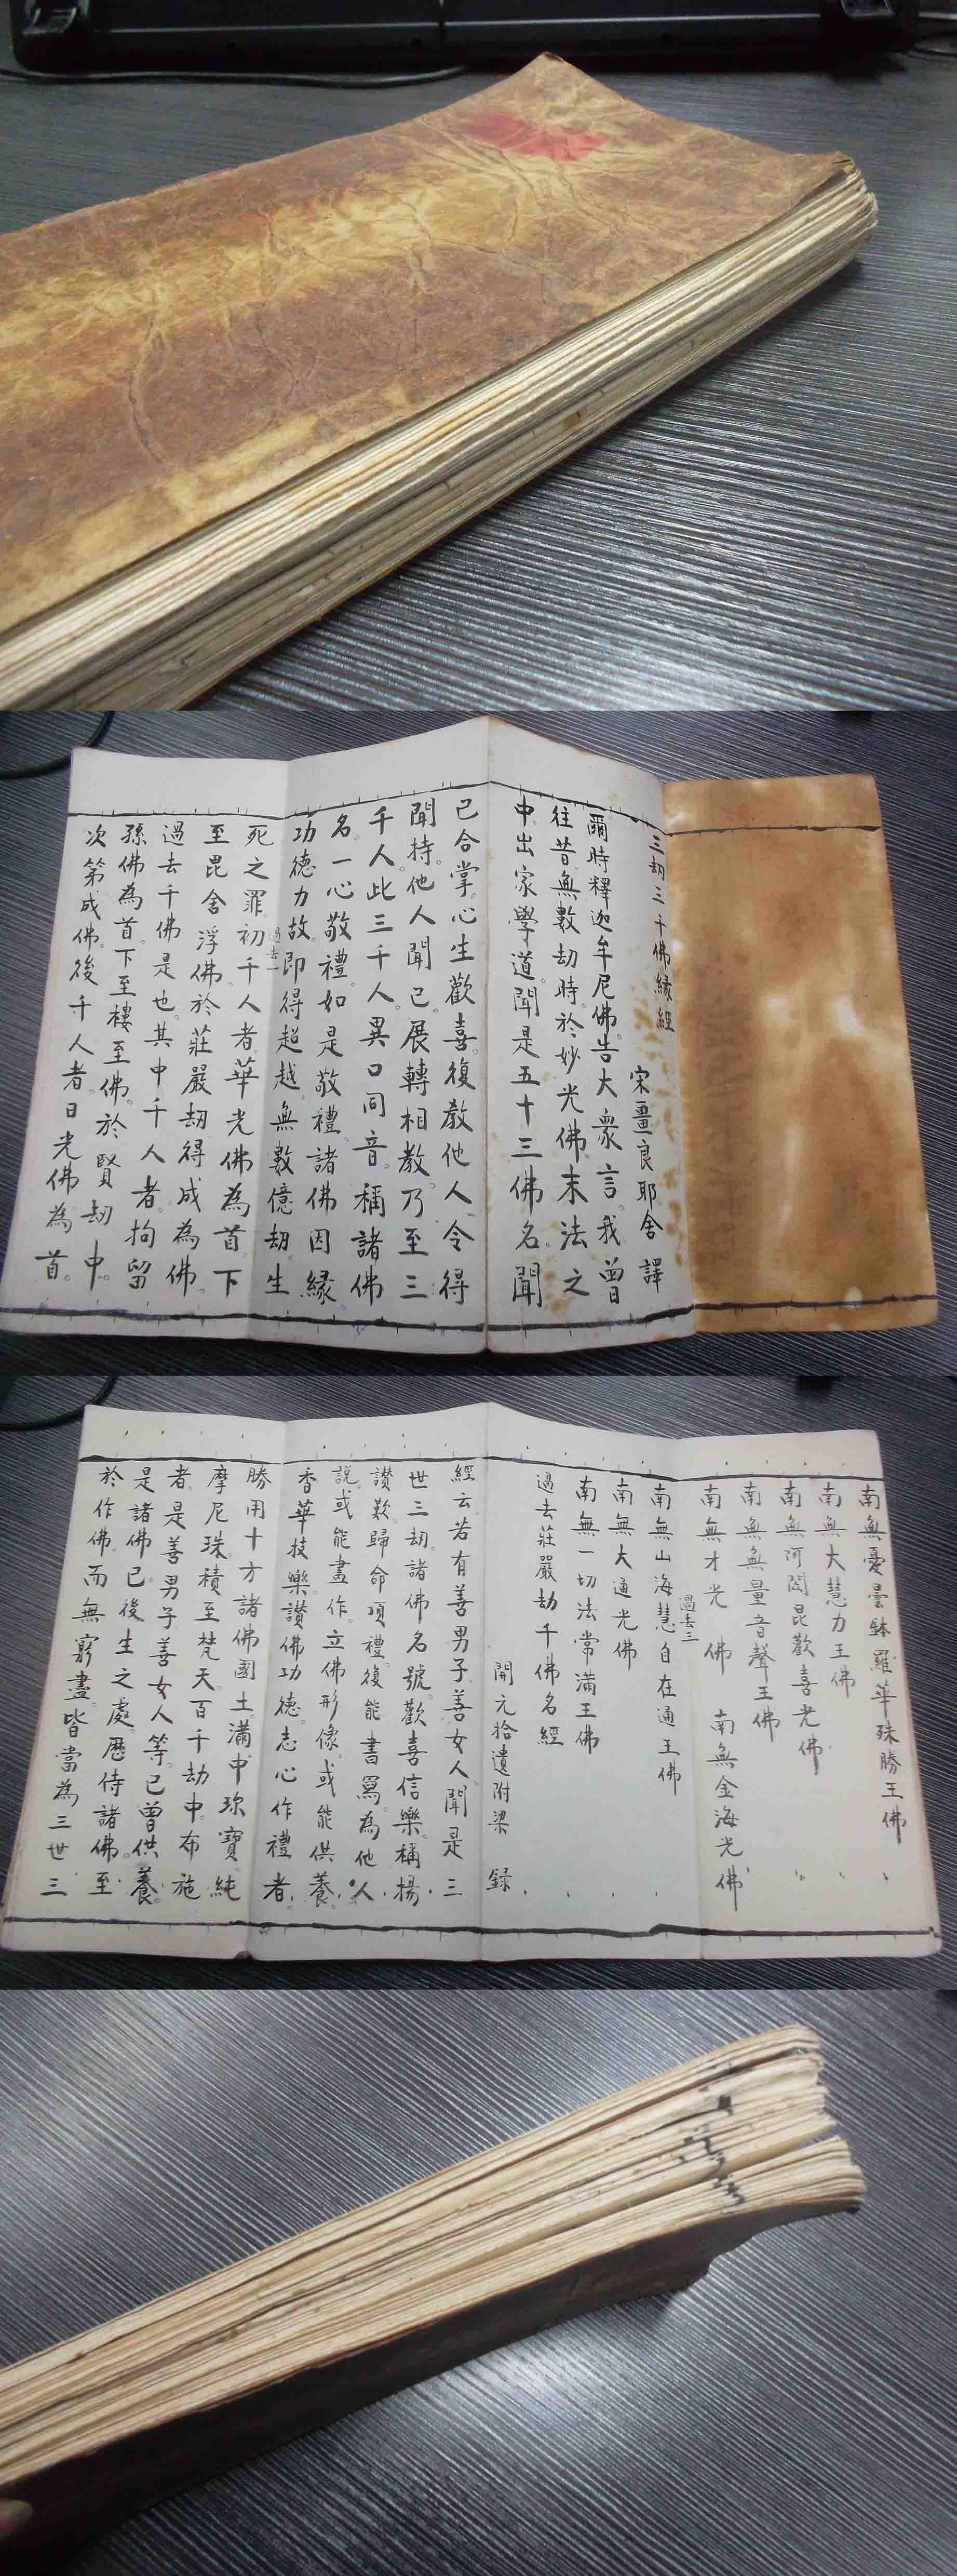 三劫三千佛緣經
宋畺良耶舍譯
爾時釋迦牟尼佛告大眾言我曾
往昔無數劫時於妙光佛末法之
中出家學道聞是五十三佛名聞
已合掌心生歡喜復教他人令得
聞持他人聞已展轉相教乃至三
千人此三千人異口同音稱諸佛
名一心敬禮如是敬禮諸佛因緣
功德力故即得超越無數億劫生
過去一
死之罪初千人者華光佛為首下
至毘舍浮佛於莊嚴劫得成為佛
過去千佛是也其中千人者拘留
孫佛為首下至樓至佛於賢劫中
次第成佛後千人者日光佛為首
南無憂曇缽羅華珠勝王佛
南無大慧力王佛
南無阿閦毘歡喜光佛
南無無量音聲王佛
南無才光佛 南無金海光佛
過去三
南無山海慧自在通王佛
南無大通光佛
南無一切法常滿王佛
過去莊嚴劫千佛名經
開元拾遺附梁錄
經云若有善男子善女人聞是三
世三劫諸佛名號歡喜信樂稱揚
讚歎歸命頂禮復能書寫為他人
說或能畫作立佛形像或能供養
香華技樂讚佛功德志心作禮者
勝用十方諸佛國土滿中珍寶純
摩尼珠積至梵天百千劫中布施
者是善男子善女人等已曾供養
是諸佛已後生之處歷侍諸佛至
於作佛而無窮盡皆當為三世三